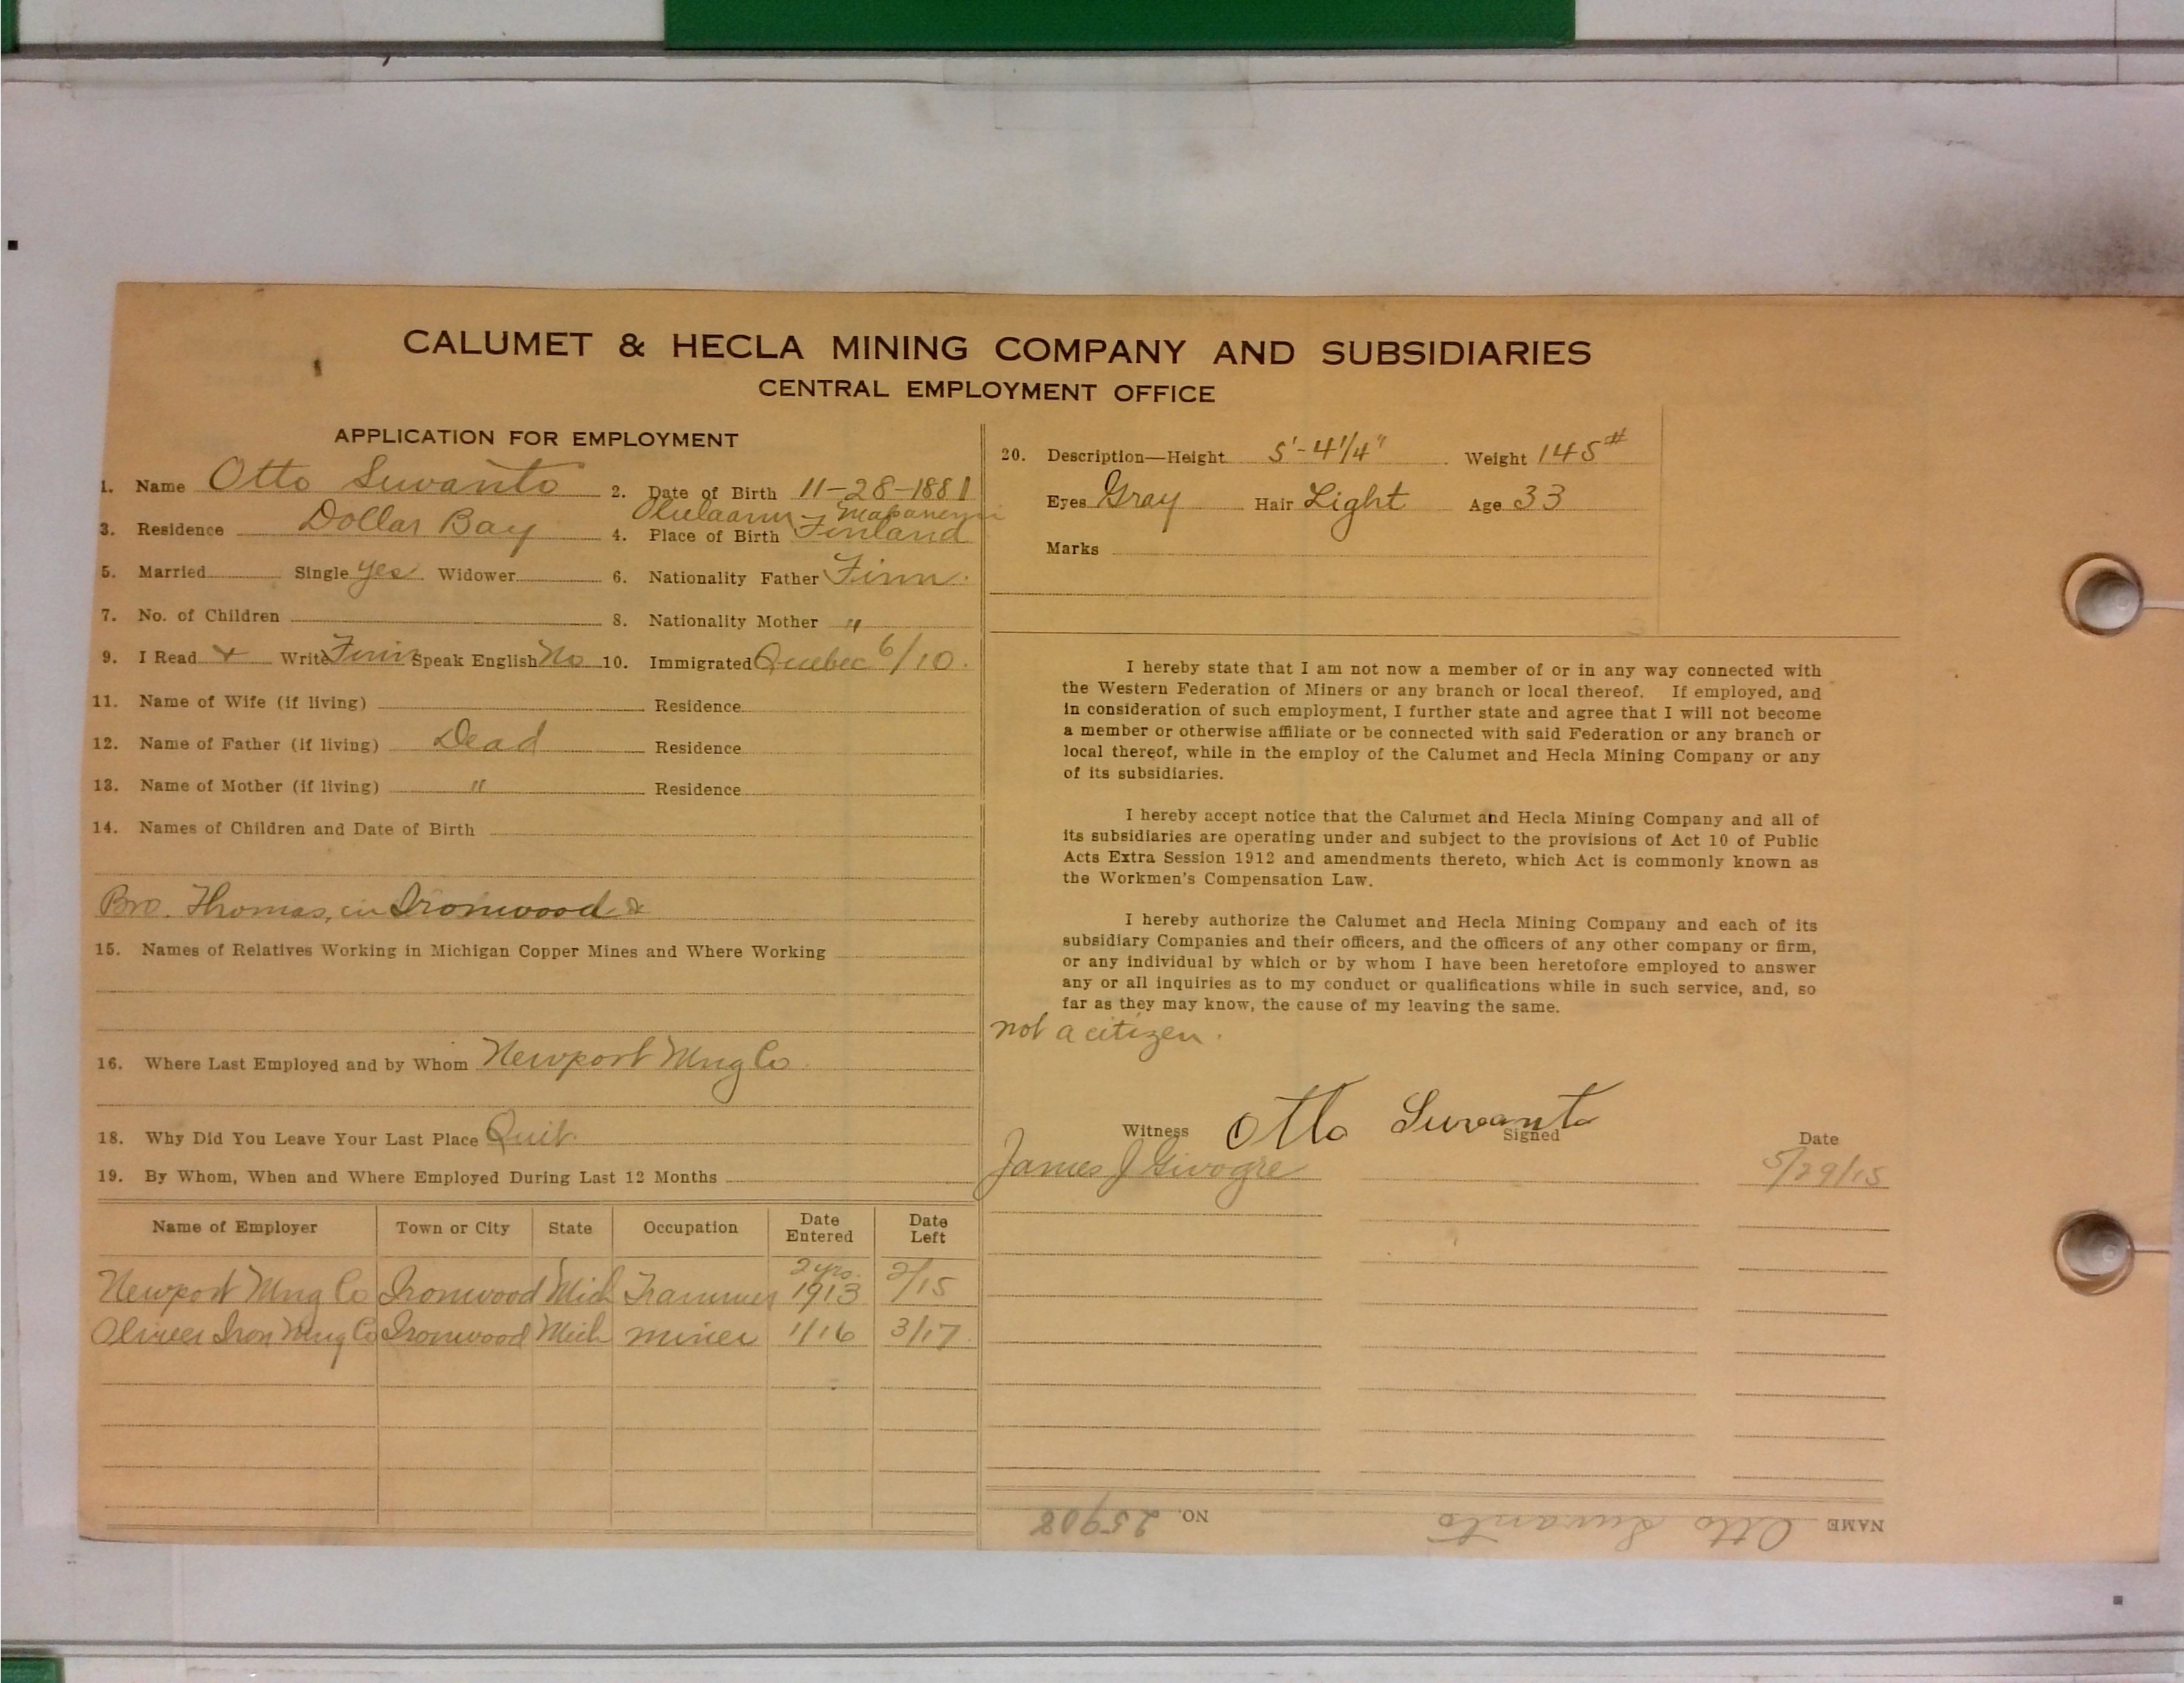 CALUMET & HECLA MINING COMPANY AND SUBSIDIARIES
CENTRAL EMPLOYMENT OFFICE
APPLICATION FOR EMPLOYMENT
1. Name Otto Suvanto 2. Date of Birth 11-28-1881
3. Residence Dollar Bay 4. Place of Birth Finland
5. Married Single yes Widower 6. Nationality Father Finn.
7. No. of Children 8. Nationality Mother "
9. I Read + Write Finn Speak English No 10. Immigrated Quebec 6/10.
11. Name of Wife (if living) Residence
12. Name of Father (if living) Dead Residence
13. Name of Mother (if living) " Residence
14. Names of Children and Date of Birth
Bro. Thomas, in Ironwood
15. Names of Relatives Working in Michigan Copper Mines and Where Working
16. Where Last Employed and by Whom Newport Mng Co
18. Why Did You Leave Your Last Place Quit
19. By Whom, When and Where Employed During Last 12 Months
Name of Employer Town or City State Occupation Date Entered Date Left
2 yrs.
Newport Mng Co Ironwood Mich Trammer 1913 2/15
Oliver Iron Mng Co Ironwood Mich miner 1/16 3/17
20. Description—Height 5'-4 1/4" Weight 145#
Eyes Gray Hair Light Age 33
Marks
I hereby state that I am not now a member of or in any way connected with
the Western Federation of Miners or any branch or local thereof. If employed, and
in consideration of such employment, I further state and agree that I will not become
a member or otherwise affiliate or be connected with said Federation or any branch or
local thereof, while in the employ of the Calumet and Hecla Mining Company or any
of its subsidiaries.
I hereby accept notice that the Calumet and Hecla Mining Company and all of
its subsidiaries are operating under and subject to the provisions of Act 10 of Public
Acts Extra Session 1912 and amendments thereto, which Act is commonly known as
the Workmen's Compensation Law.
I hereby authorize the Calumet and Hecla Mining Company and each of its
subsidiary Companies and their officers, and the officers of any other company or firm,
or any individual by which or by whom I have been heretofore employed to answer
any or all inquiries as to my conduct or qualifications while in such service, and, so
far as they may know, the cause of my leaving the same.
not a citizen.
Otto Suvanto
Witness Signed Date
James J 5/29/15
NAME Otto Suvanto NO. 25908